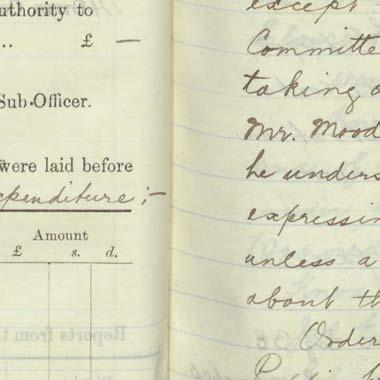 uthority to
.. £ —
Sub-Officer.
were laid before
penditure;-
Amount
£ s. d.
except
Committe
taking
Mr. Mood
he unders
expressin
unless a
about th
Order